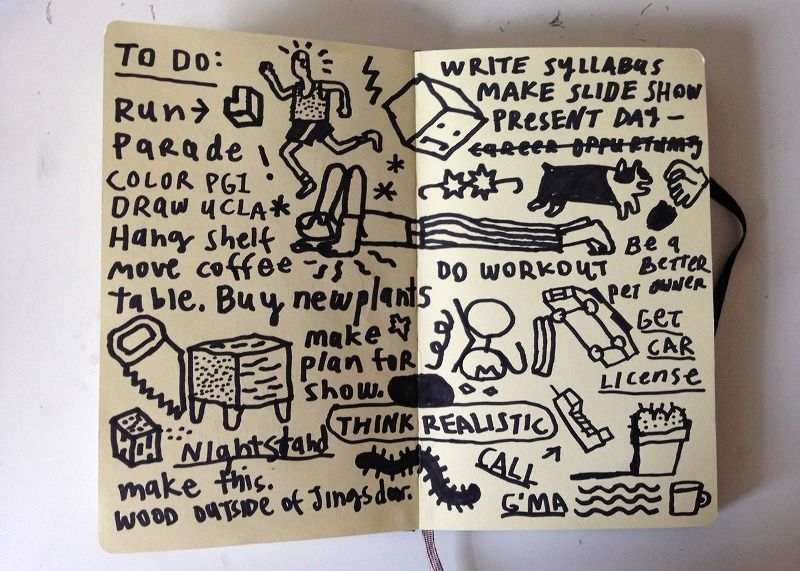 TO DO:
Run→
Parade!
COLOR PG1
DRAW UCLA*
Hang shelf
move coffee
table. Buy new plants
make
plan for
show.
THINK REALISTIC
Nightstand
make this.
WOOD OUTSIDE OF Jings dor.
WRITE SYLLABUS
MAKE SLIDE SHOW
PRESENT DAY —
CAREER OPPURTUNITY
DO WORKOUT
Be a
BETTER
PET OWNER
GET
CAR
LICENSE
CALL
G'MA